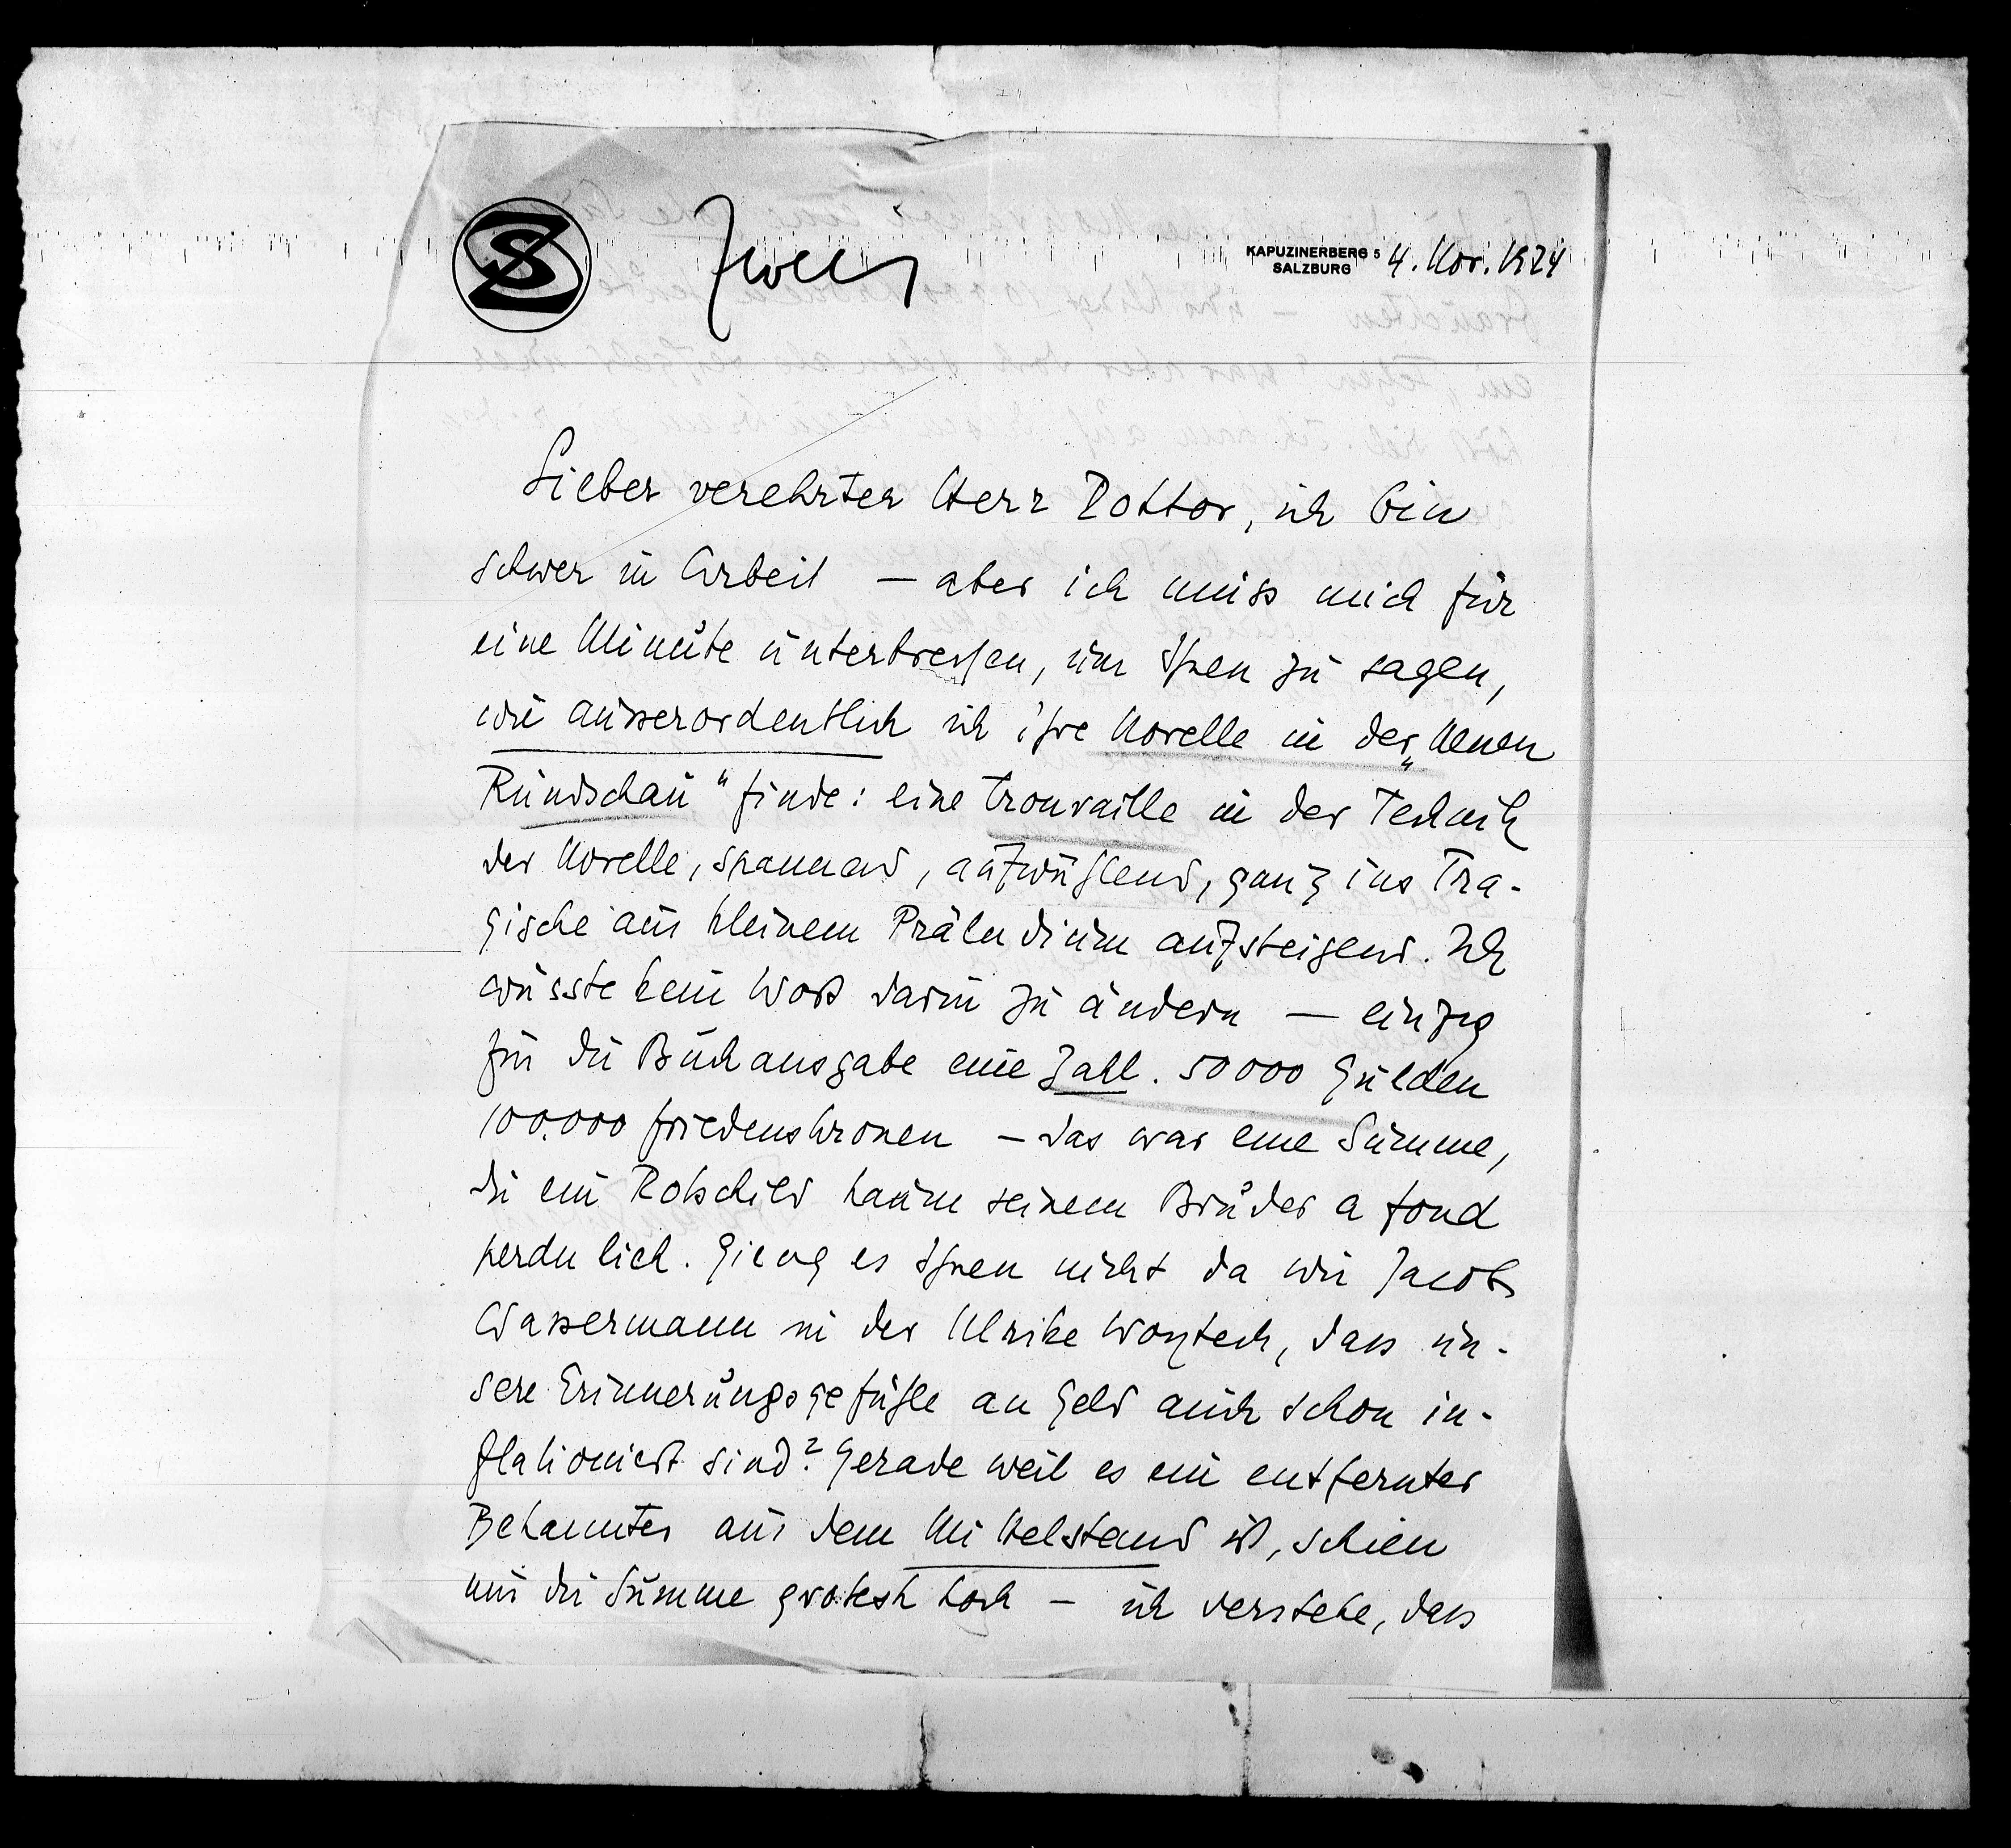 SZ
Zweig
KAPUZINERBERG 5
SALZBURG
4. Nov. 1924
Lieber verehrter Herr Doktor, ich bin
schwer in Arbeit – aber ich muss mich für
eine Minute unterbrechen, um Ihnen zu sagen,
wie ausserordentlich ich ihre Novelle in der „Neuen
Rundschau“ finde: eine trouvaille in der Technik
der Novelle, spannend, aufwühlend, ganz ins Tra-
gische aus kleinem Präludium aufsteigend. Ich
wüsste kein Wort darin zu ändern – einzig
für die Buchausgabe eine Zahl. 50000 Gulden
100.000 Friedenskronen – das war eine Summe,
die ein Rotschild kaum seinem Bruder a fond
perdu lieh. Gieng es Ihnen nicht da wie Jacob
Wassermann in der Ulrike Woytech, dass un-
sere Erinnerungsgefühle an Geld auch schon in-
flationiert sind? Gerade weil es ein entfernter
Bekannter aus dem Mittelstand ist, schien
mir die Summe grotesk hoch – ich verstehe, dass